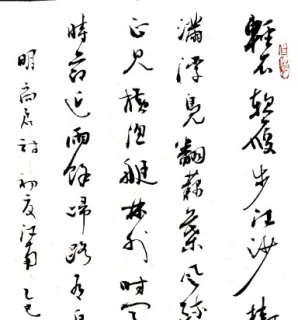 輕衣軟履步江沙
滿浮凫翻藕葉風疏
正見橫渔艇林外時
時节近雨餘歸路有
明 高启詩 初夏江南 乙巳